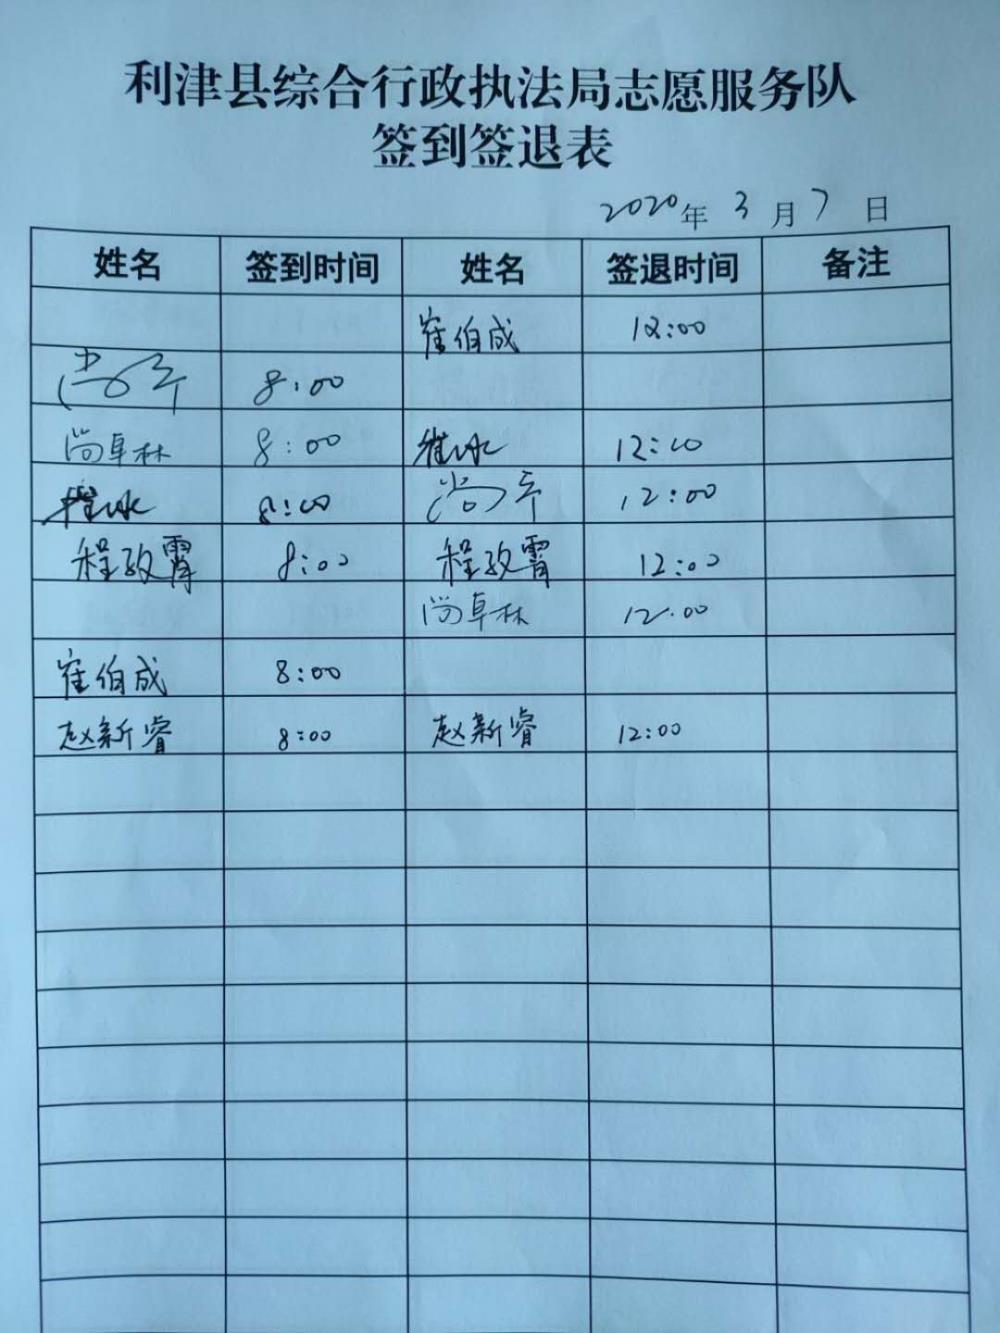 利津县综合行政执法局志愿服务队
签到签退表
2020年 3月7日
姓名 签到时间 姓名 签退时间 备注
崔伯成 12:00
尚平 8:00
尚卓林 8:00 崔冰 12:00
崔冰 8:00 尚平 12:00
程致霄 8:00 程致霄 12:00
尚卓林 12:00
崔伯成 8:00
赵新睿 8:00 赵新睿 12:00